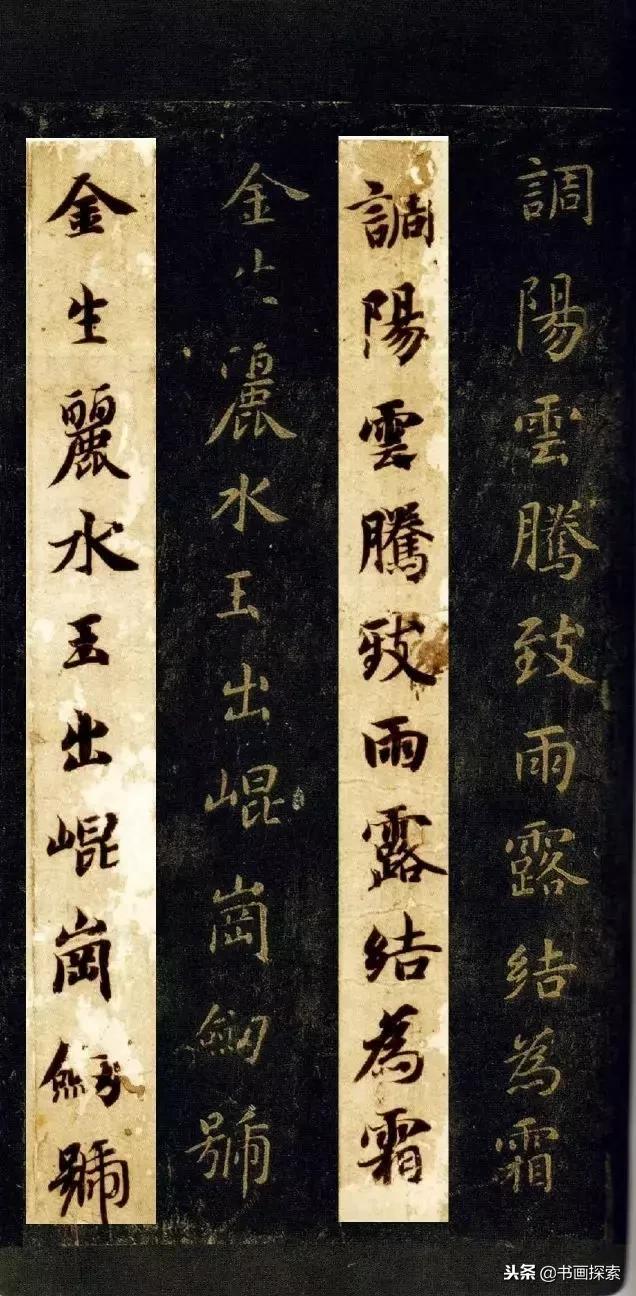 調陽雲騰致雨露結為霜
調陽雲騰致雨露結為霜
金生麗水玉出崐崗劒號
金生麗水玉出崐崗劒號
头条 @书画探索